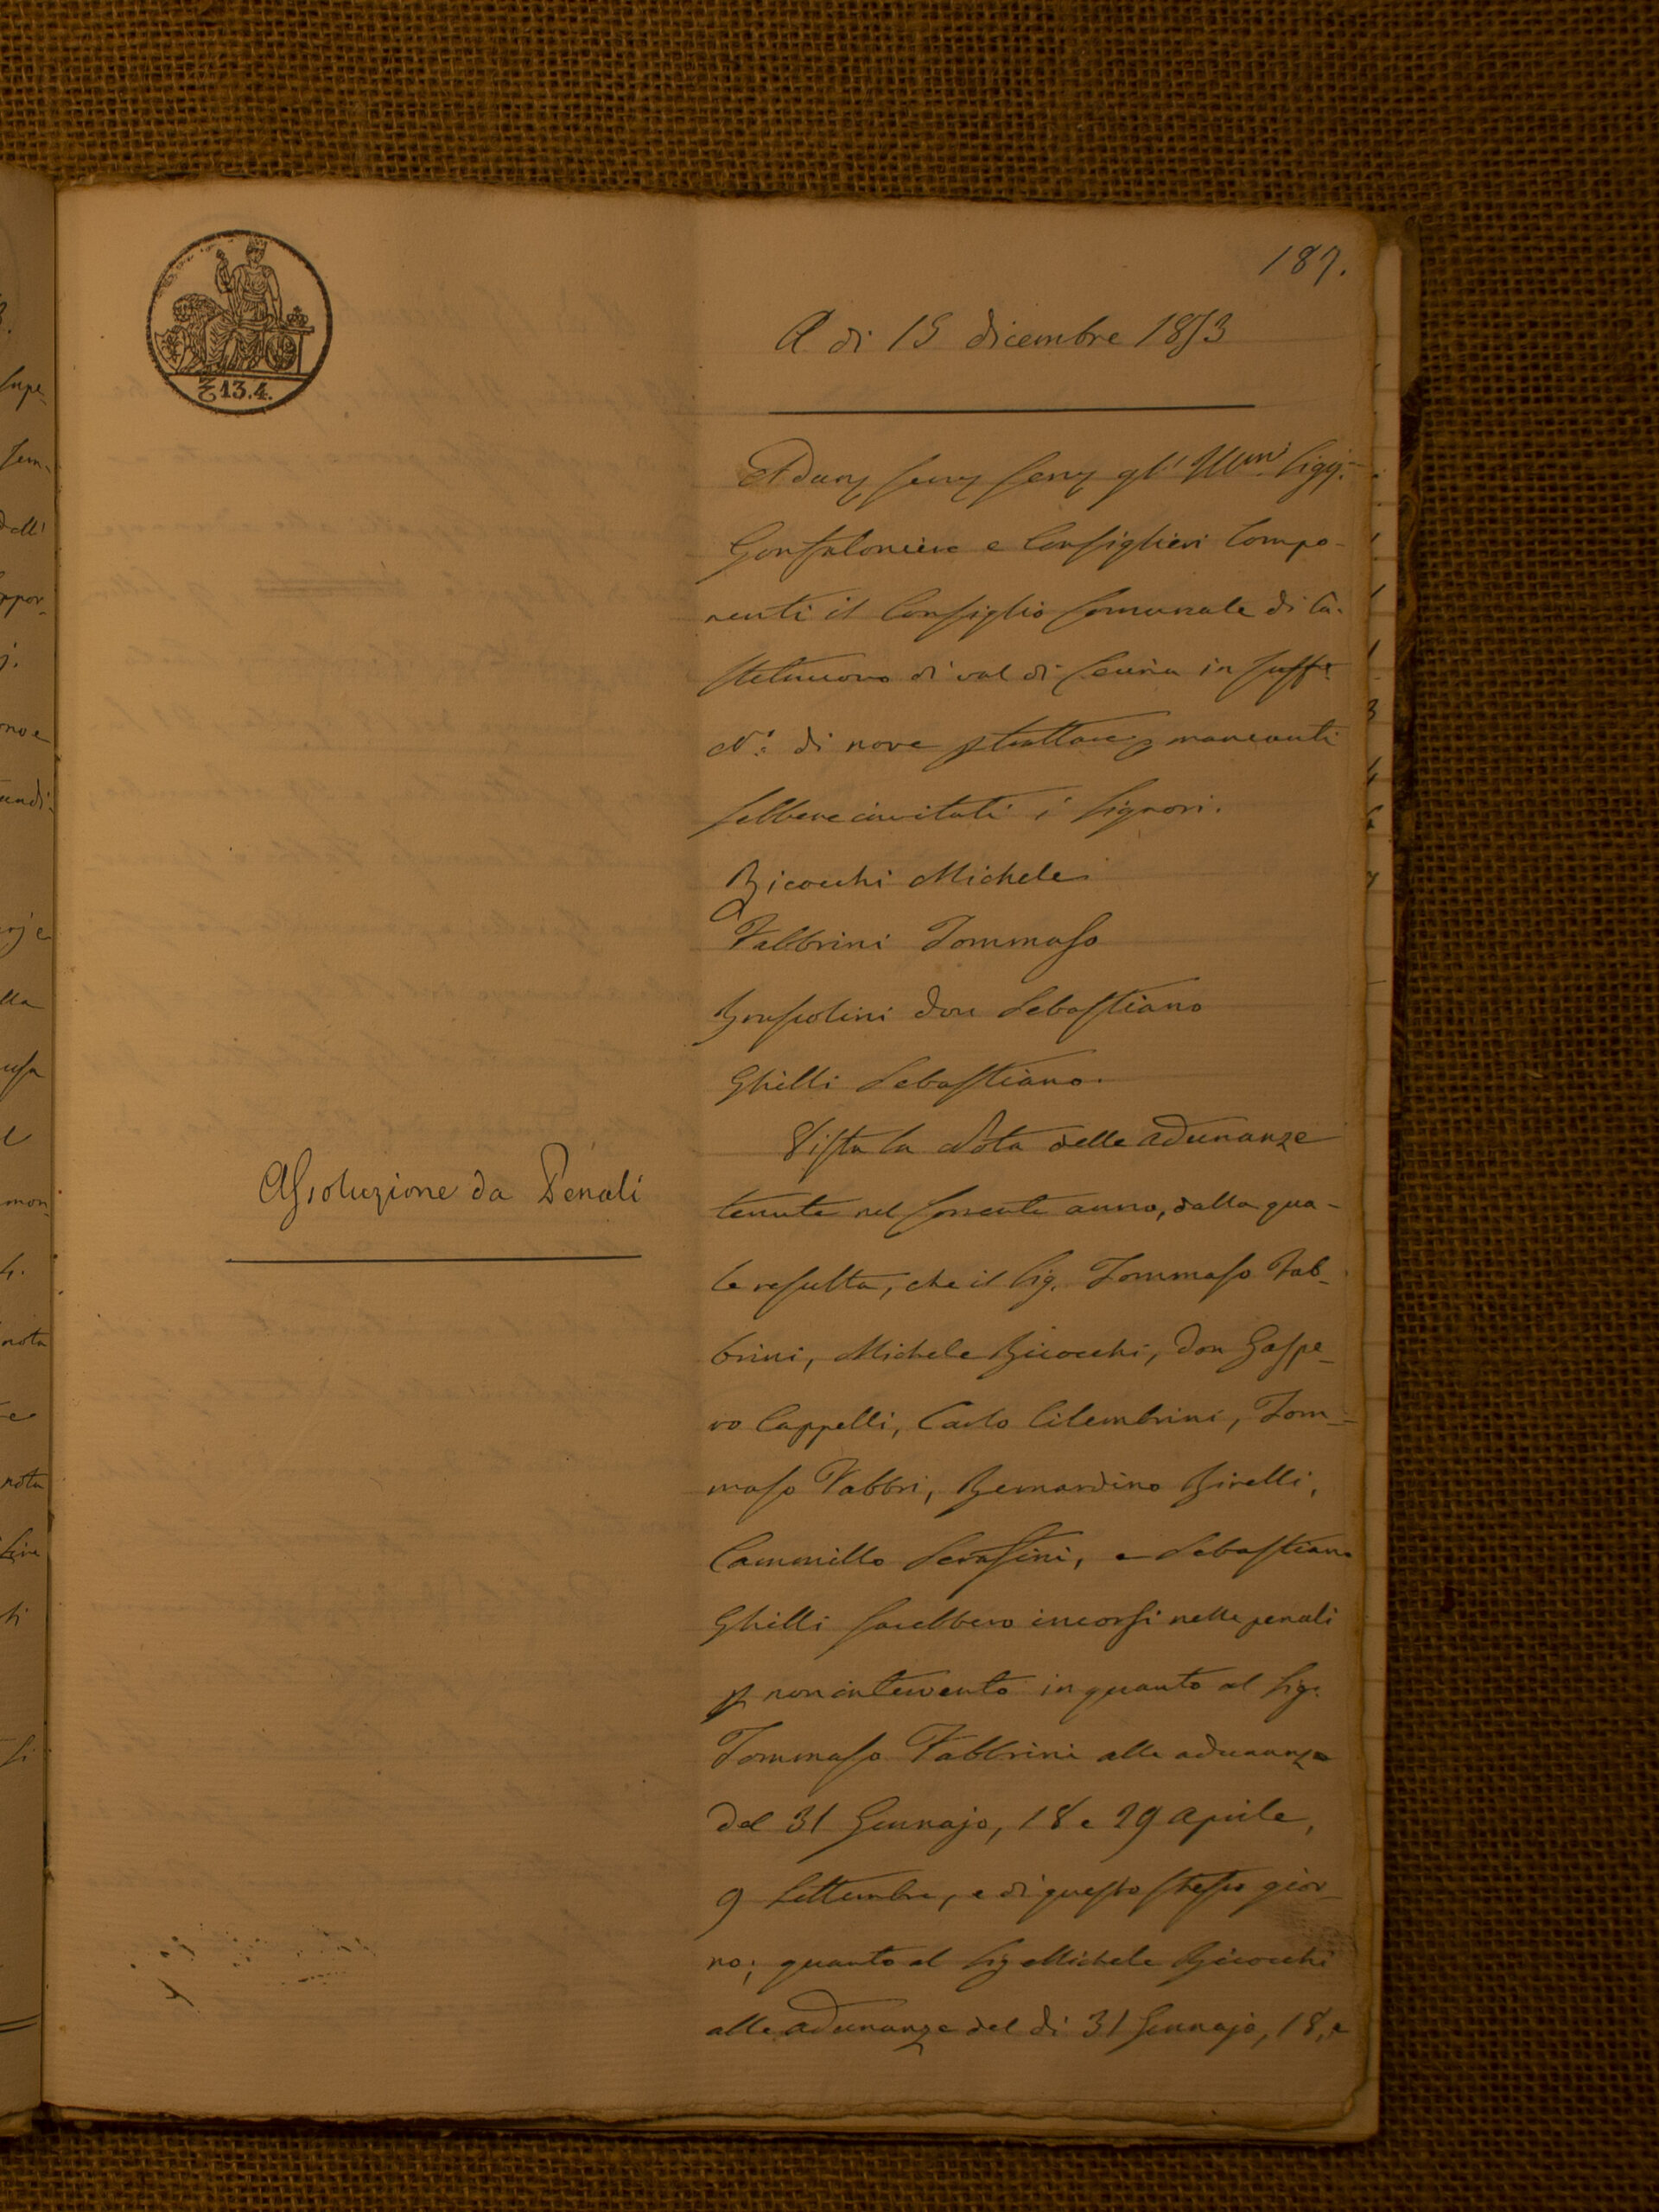 187.
A di 15 dicembre 1853
13.4.
Adunj servj servj gl' Ill.mi Sigg.
Gonfaloniere e Consiglieri Compo-
nenti il Consiglio Comunale di Ca-
stelnuovo di val di Cecina in suff.e
N.o di nove p trattare, mancanti
sebbene invitati i Signori.
Bicocchi Michele
Fabbrini Tommaso
don Sebastiano
Ghilli Sebastiano.
Assoluzione da Penali
Vista la Nota delle adunanze
tenute nel corrente anno, dalla qua-
le resulta, che il Sig. Tommaso Fab-
brini, Michele Bicocchi, Don Gaspe-
ro Cappelli, Carlo Cilembrini, Tom-
maso Fabbri, Bernardino Birelli,
Cammillo Serafini, e Sebastiano
Ghilli sarebbero incorsi nelle penali
p non intervento in quanto al Sig.
Tommaso Fabbrini alle adunanze
del 31 Gennajo, 18 e 29 Aprile,
9 Settembre, e di questo stesso gior-
no; quanto al Sig Michele Bicocchi
alle adunanze del di 31 Gennajo, 18, e